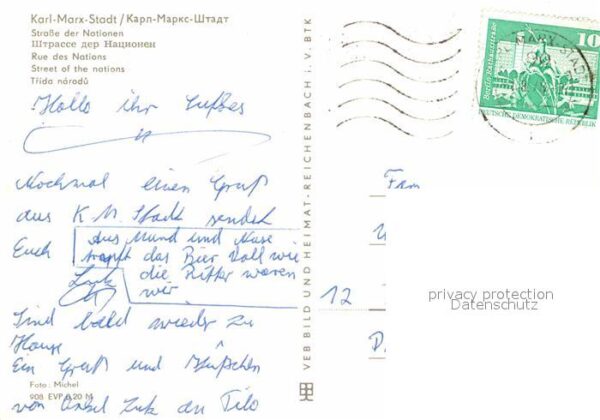 Karl-Marx-Stadt / Карл-Маркс-Штадт
Straße der Nationen
Штрассе дер Национен
Rue des Nations
Street of the nations
Třída národů
Hallo ihr
Nochmal einen Gruß
aus K. M. Stadt sendet
Euch
Aus Mund und Nase
tropft das Bier Voll wie
die Ritter waren
wir
Sind bald wieder zu
Hause
Ein Gruß und Küßchen
von Onkel an Tilo
Foto: Michel
908 EVP 0,20 M
VEB BILD UND HEIMAT · REICHENBACH i. V. BTK
10
Berlin · Rathausstraße
DEUTSCHE DEMOKRATISCHE REPUBLIK
MARX-STADT
12
privacy protection
Datenschutz